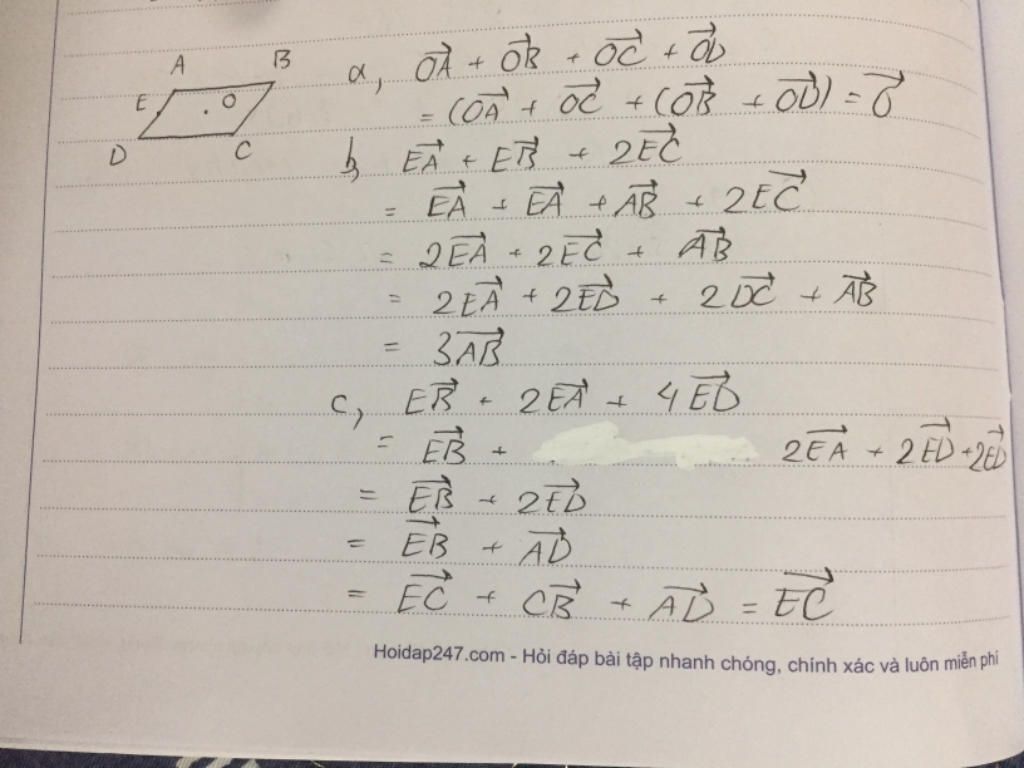 A B
E O
D C
a, OA→ + OB→ + OC→ + OD→
= (OA→ + OC→ + (OB→ + OD→) = O→
b, EA→ + EB→ + 2EC→
= EA→ + EA→ + AB→ + 2EC→
= 2EA→ + 2EC→ + AB→
= 2EA→ + 2ED→ + 2DC→ + AB→
= 3AB→
c, EB→ + 2EA→ + 4ED→
= EB→ + 2EA→ + 2ED→ + 2ED→
= EB→ + 2ED→
= EB→ + AD→
= EC→ + CB→ + AD→ = EC→
Hoidap247.com - Hỏi đáp bài tập nhanh chóng, chính xác và luôn miễn phí